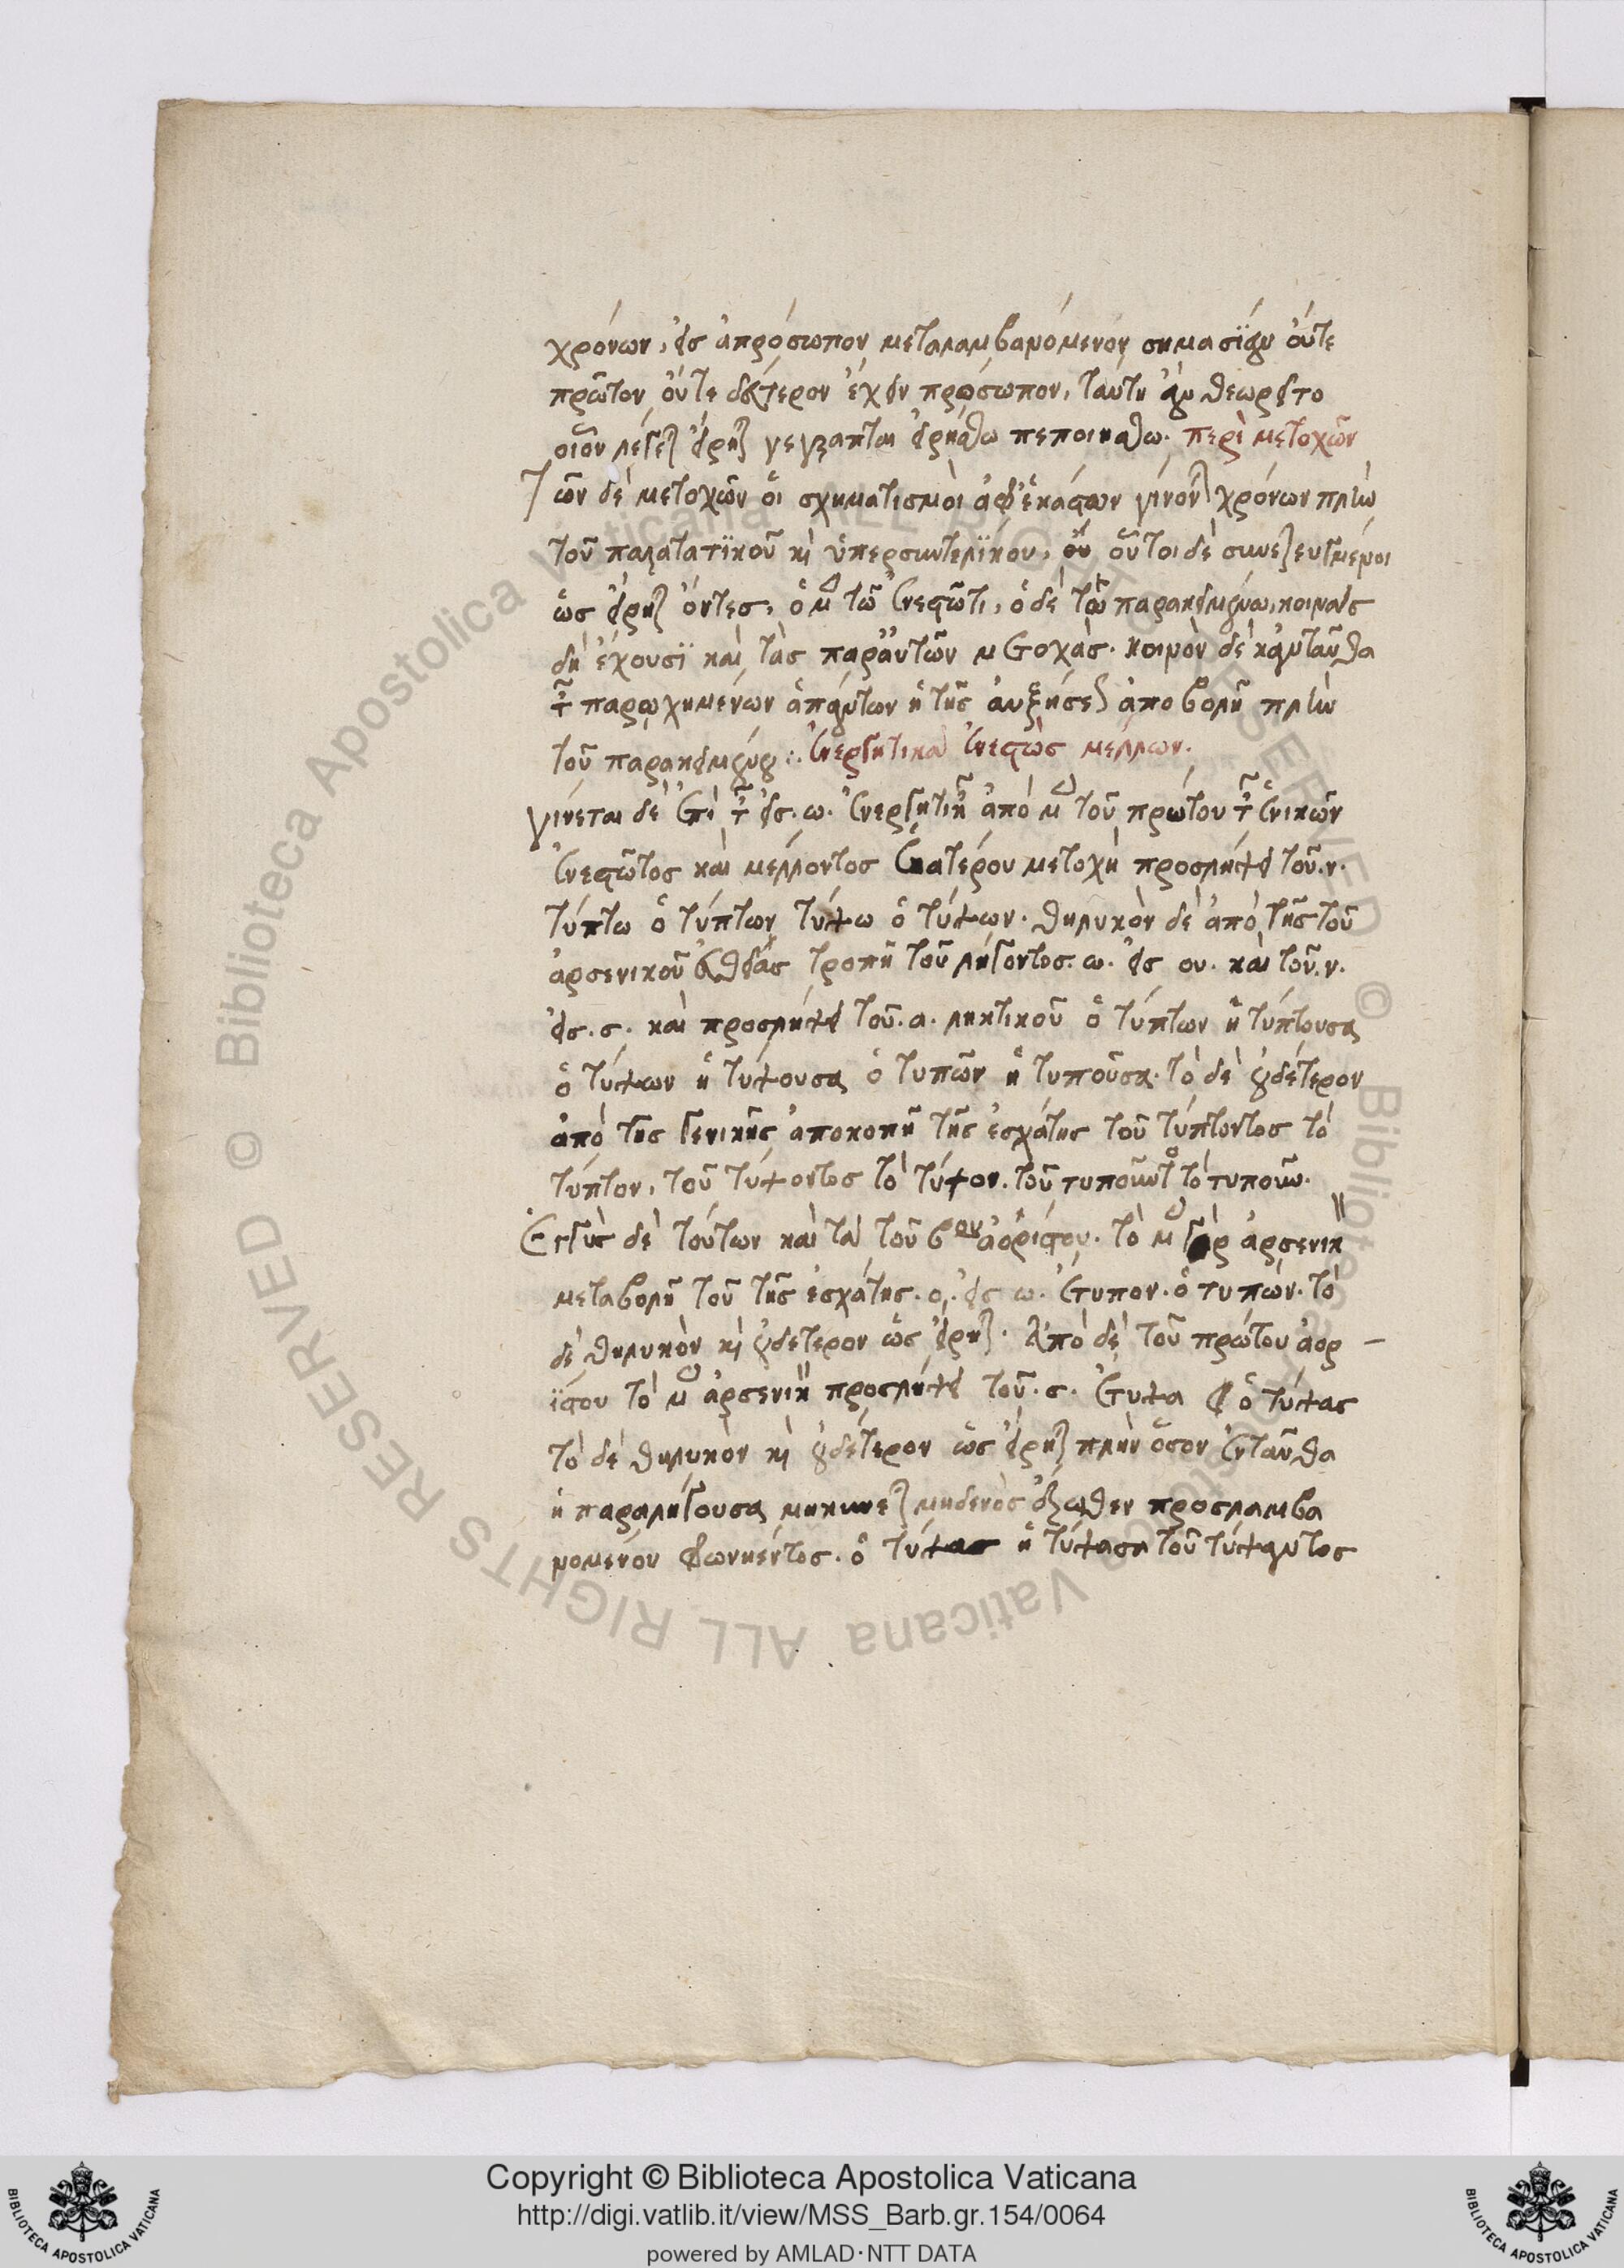 χρόνων, εἰς ἀπρόσωπον μεταλαμβανόμενον σημασΐαν ὄυτε
πρῶτον ὄυτε δεύτερον ἔχειν πρόσωπον, ταύτη ἂν θεωρεῖτο
οἷον λέγεται εἴρηται γέγραπται εἰρήσθω πεποιήσθω. περὶ μετοχῶν
Τῶν δὲ μετοχῶν ὁι σχηματισμὸι ἀφ' ἑκάστων γίνονται χρόνων πλὴν
τοῦ παρατατϊκοῦ καὶ ὑπερσυντελϊκου, οὗτοι δὲ συνεζευγμένοι
ὡς εἴρηται ὄντες, ὁ μὲν τῶ ἐνεστῶτι, ὁ δὲ τῶ παρακειμένω, κοινὰς
δὴ ἔχουσϊ καὶ τὰς παρ' ἀυτῶν μετοχὰς. κοινὸν δὲ κἀνταῦθα
τῶν παρωχημένων ἁπάντων ἡ τῆς ἀυξήσεως ἀποβολὴ πλὴν
τοῦ παρακειμένου :. Ἐνεργητικὰ ἐνεστὼς μέλλων.
γίνεται δὲ ἐπὶ τῶν εἰς. ω. ἐνεργητικῶν ἀπὸ μὲν τοῦ πρώτου τῶν ἑνικῶν
ἐνεστῶτος καὶ μέλλοντος ἑκατέρου μετοχὴ προσλήψει τοῦ. ν.
τύπτω ὁ τύπτων τύψω ὁ τύψων. θηλυκὸν δὲ ἀπὸ τῆς τοῦ
ἀρσενικοῦ ἐυθείας τροπῆ τοῦ λήγοντος. ω. εἰς ου. καὶ τοῦ. ν.
εἰς. σ. καὶ προσλήψει τοῦ. α. ληκτικοῦ ὁ τύπτων ἡ τύπτουσα
ὁ τύψων ἡ τύψουσα ὁ τυπῶν ἡ τυποῦσα. τὸ δὲ οὐδέτερον
ἀπὸ τῆς γενικῆς ἀποκοπῆ τῆς ἐσχάτης τοῦ τύπτοντος τὸ
τύπτον, τοῦ τύψοντος τὸ τύψον. τοῦ τυποῦντος τὸ τυποῦν.
Ἐγγὺς δὲ τούτων καὶ τὰ τοῦ βου ἀορίστου. τὸ μὲν γὰρ ἀρσενικὸν
μεταβολῆ τοῦ τῆς ἐσχάτης. ο. εἰς ω. ἔτυπον. ὁ τυπών. τὸ
δὲ θηλυκὸν καὶ οὐδέτερον ὡς εἴρηται. Ἀπὸ δὲ τοῦ πρώτου ἀορ –
ϊστου τὸ μὲν ἀρσενικὸν προσλήψει τοῦ. σ. ἔτυψα ὁ τύψας
τὸ δὲ θηλυκὸν καὶ οὐδέτερον ὡς εἴρηται πλὴν ὅσον ἐνταῦθα
ἡ παραλήγουσα μηκύνεται μηδενὸς ἔξωθεν προσλαμβα
νομένου φωνήεντος. ὁ τύψας ἡ τύψασα τοῦ τύψαντος
Copyright © Biblioteca Apostolica Vaticana
http://digi.vatlib.it/view/MSS_Barb.gr.154/0064
powered by AMLAD·NTT DATA